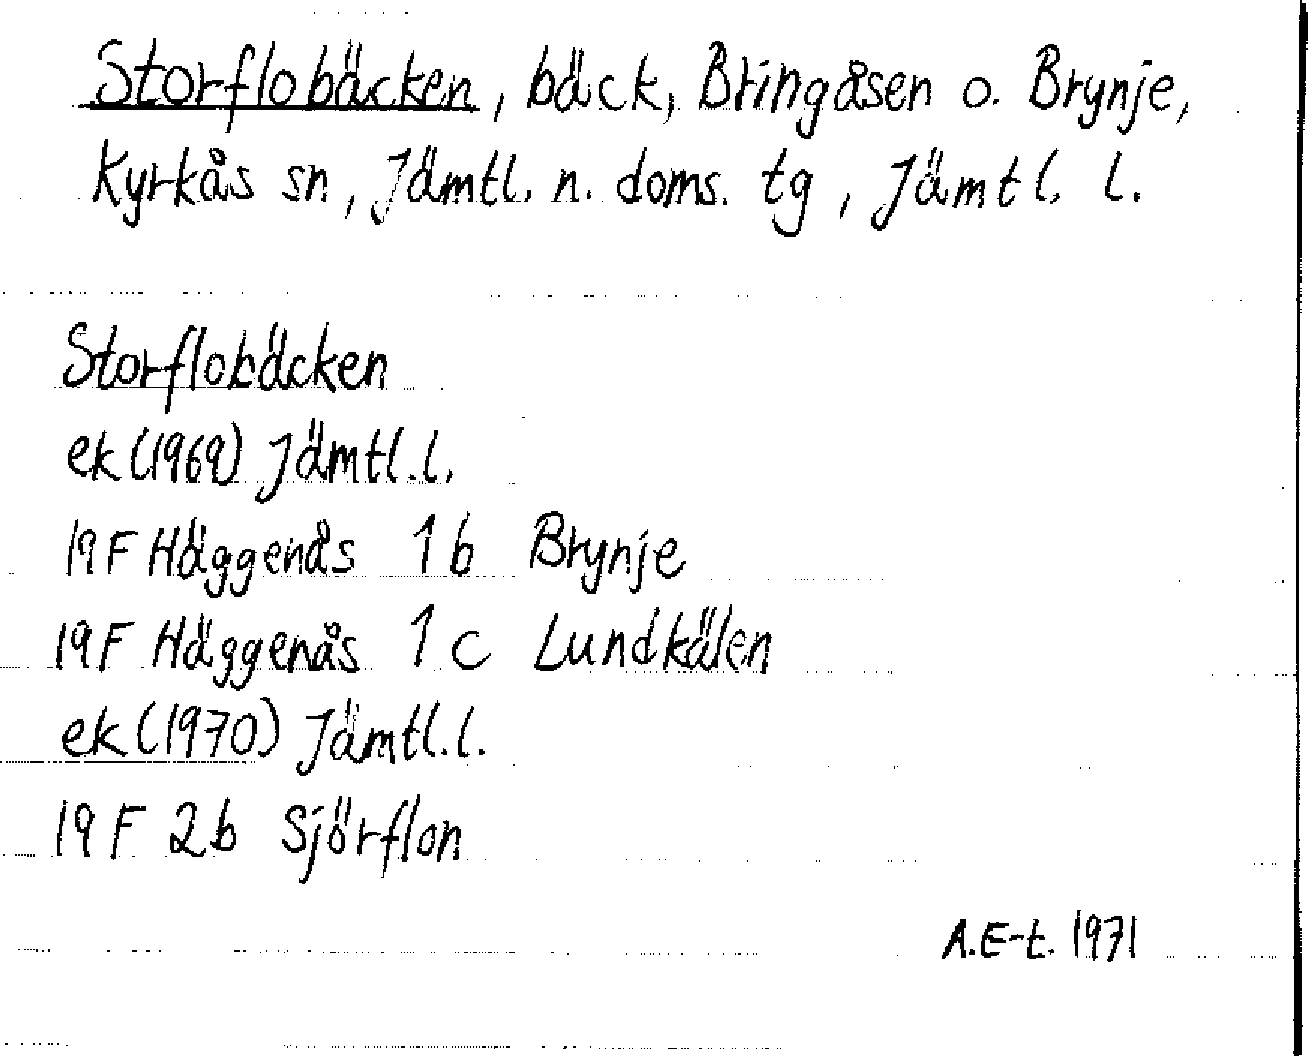 Storflobäcken, bäck, Bringåsen o. Brynje,
Kyrkås sn, Jämtl. n. doms. tg, Jämtl. l.
Storflobäcken
ek (1969) Jämtl. l.
19 F Häggenås 1 b Brynje
19 F Häggenås 1 c Lundkälen
ek (1970) Jämtl. l.
19 F 2b Sjörflon
A. E-t. 1971